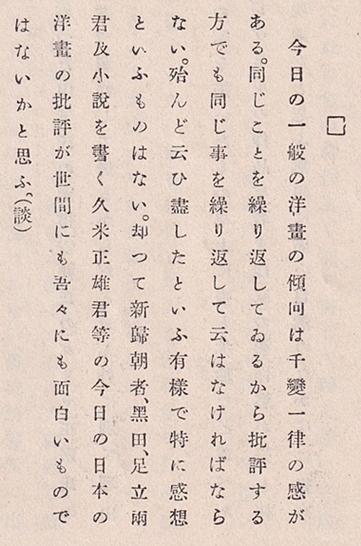 □
今日の一般の洋畫の傾向は千變一律の感が
ある。同じことを繰り返してゐるから批評する
方でも同じ事を繰り返して云はなければなら
ない。殆んど云ひ盡したといふ有樣で特に感想
といふものはない。却つて新歸朝者、黑田、足立兩
君及小說を書く久米正雄君等の今日の日本の
洋畫の批評が世間にも吾々にも面白いもので
はないかと思ふ。(談)